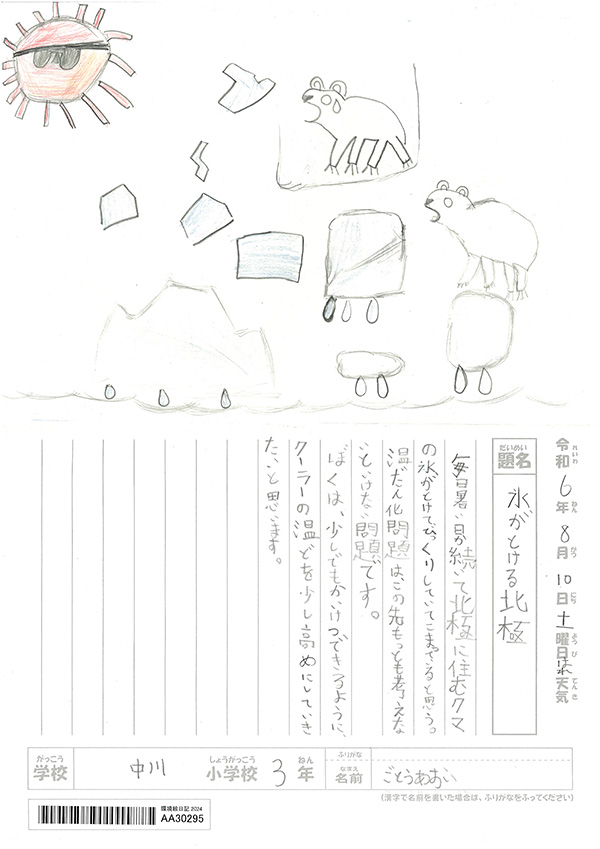 令和6年8月10日土曜日はれ天気
れいわ ねん がつ にち ようび てんき
だいめい
題名
氷がとける北極
毎日暑い日が続いて北極に住むクマ
の氷がとけてびっくりしていてこまってると思う。
温だん化問題は、この先もっとも考えな
いといけない問題です。
ぼくは、少しでもかいけつできるように、
クーラーの温どを少し高めにしていき
たいと思います。
がっこう
学校
中川
しょうがっこう
小学校
3
ねん
年
ふりがな
なまえ
名前
ごとうあおい
(漢字で名前を書いた場合は、ふりがなをふってください)
環境絵日記 2024
AA30295